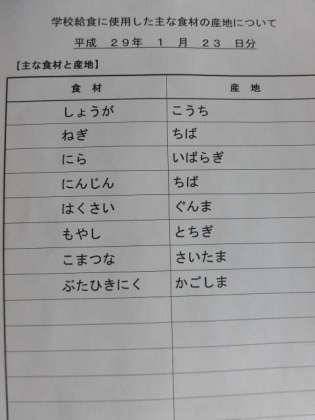 学校給食に使用した主な食材の産地について
平成 29年 1 月 23 日分
【主な食材と産地】
食 材 産 地
しょうが こうち
ねぎ ちば
にら いばらぎ
にんじん ちば
はくさい ぐんま
もやし とちぎ
こまつな さいたま
ぶたひきにく かごしま